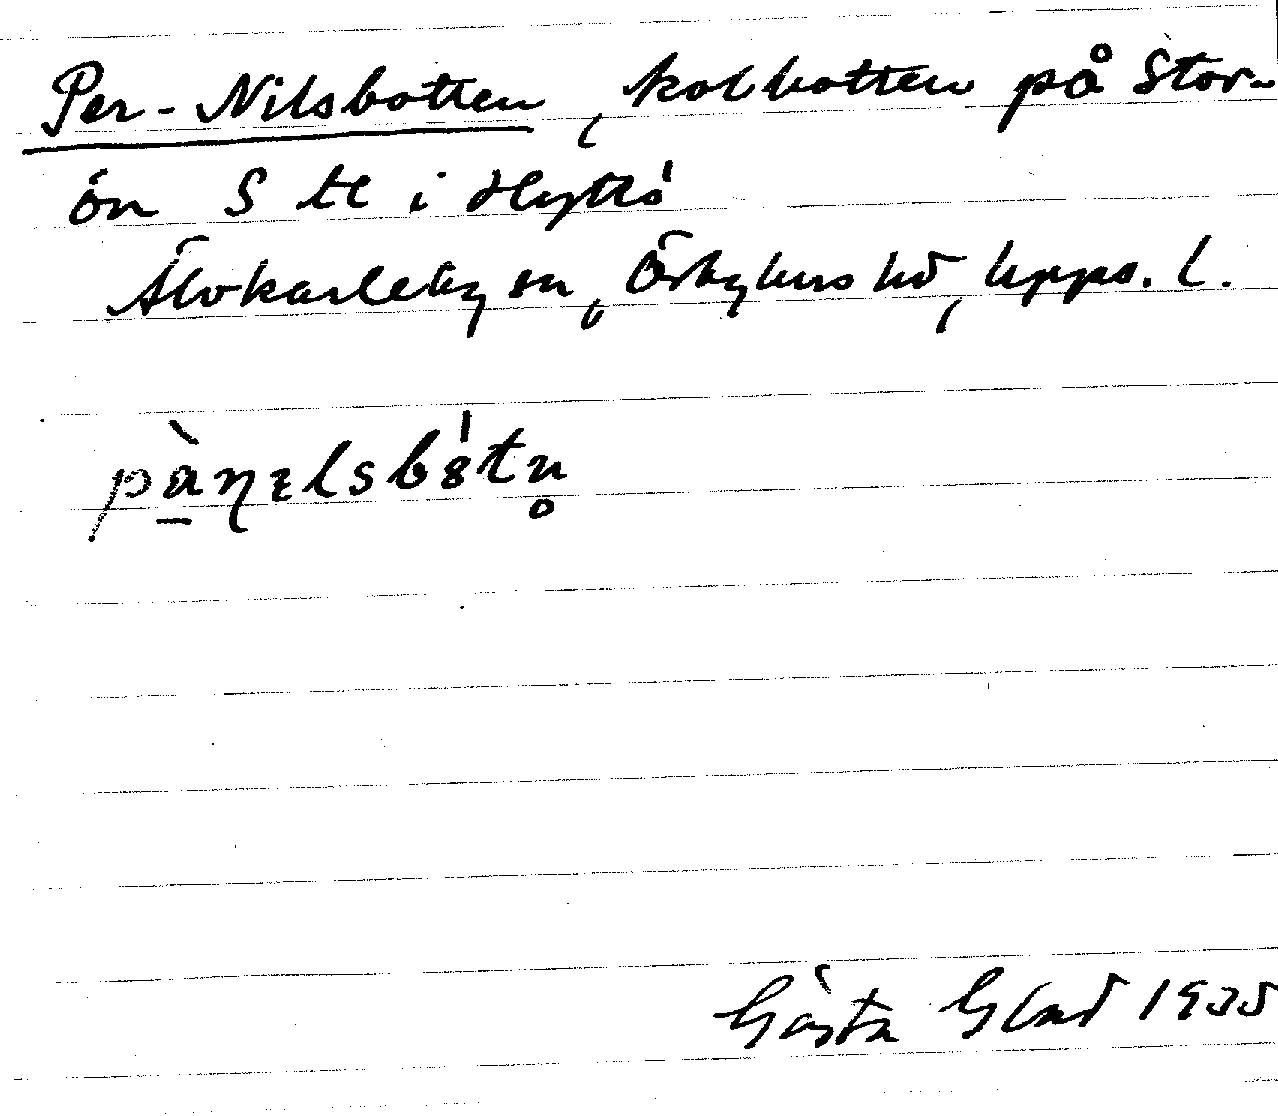 Per-Nilsbotten, kolbotten på Stor-
ön S tl i Hyttö
Älvkarleby sn, Örbyhus hd, Upps. l.
pànɛlsbåtn̥
Gösta Glad 1935